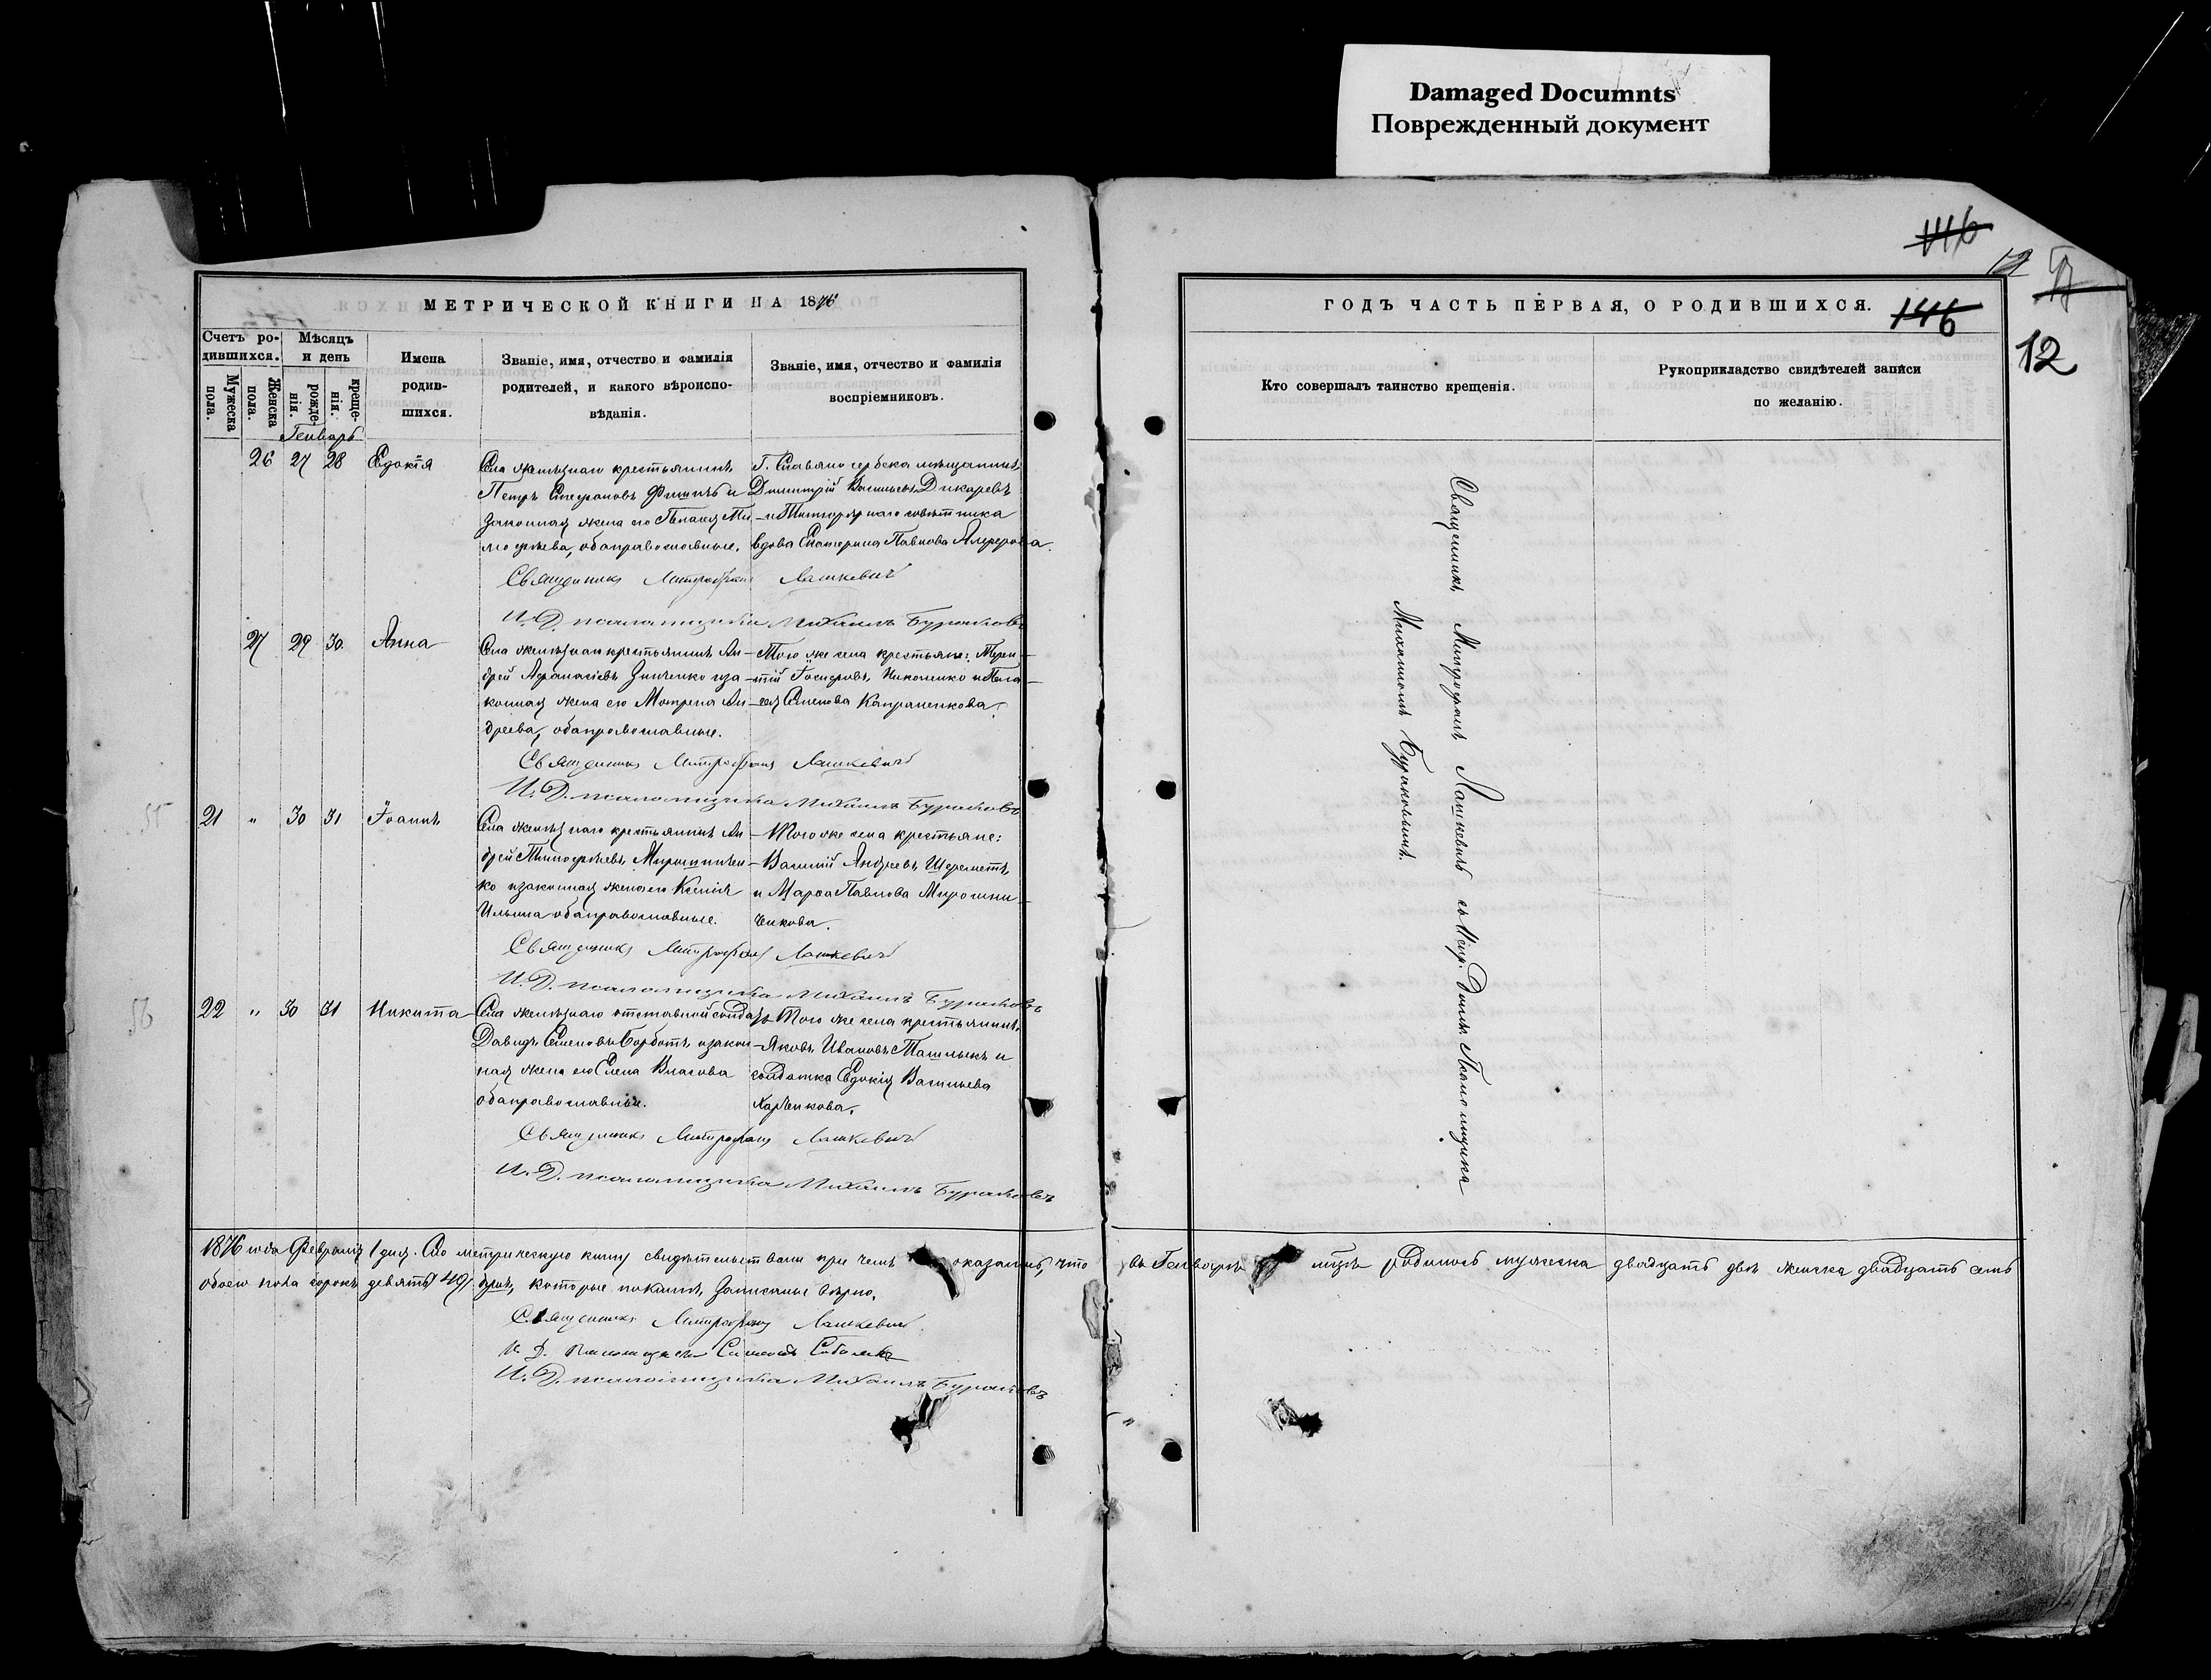 Damaged Documnts
Поврежденный документ
146
12
МЕТРИЧЕСКОЙ КНИГИ НА 1876
ГОДЪ ЧАСТЬ ПЕРВАЯ, О РОДИВШИХСЯ.
146
12
Счетъ ро-
дившихся.
Мужеска
пола.
Женска
пола.
Мѣсяцъ
и день
рожде-
нія.
креще-
нія.
Имена
родив-
шихся.
Званіе, имя, отчество и фамилія
родителей, и какого вѣроиспо-
вѣданія.
Званіе, имя, отчество и фамилія
воспріемниковъ.
Кто совершалъ таинство крещенія.
Рукоприкладство свидѣтелей записи
по желанію.
Генварь
26 27 28 Евдокія
Села Желѣзнаго крестьянинъ
Петръ Стефановъ и
законная жена его Пелагія Ти-
мофѣева, оба православные.
Г. Славяносербска мѣщанинъ
Димитрій Васильевъ Дикаревъ
и Титулярнаго совѣтника
вдова Екатерина Павлова
Священникъ Митрофанъ Лашкевичъ
И. Д. псаломщика Михаилъ Бураковъ
27 29 30 Анна
Села Желѣзнаго крестьянинъ Ан-
дрей Афанасіевъ Зинченко и за-
конная жена его Мотрена Ан-
дреева, оба православные.
Того же села крестьяне: Терен-
тій Іосифовъ Николенко и Пела-
гея Семенова Капраненкова.
Священникъ Митрофанъ Лашкевичъ
И. Д. псаломщика Михаилъ Бураковъ
21 " 30 31 Іоаннъ
Села Желѣзнаго крестьянинъ Ан-
дрей Тимофѣевъ Мирошничен-
ко и законная жена его Ксенія
Ильина оба православные.
Того же села крестьяне:
Василій Андреевъ Шереметъ
и Марѳа Павлова Мирошни-
ченкова.
Священникъ Митрофанъ Лашкевичъ
И. Д. псаломщика Михаилъ Бураковъ
22 " 30 31 Никита
Села Желѣзнаго отставной солдатъ
Давидъ Семеновъ Борботъ и закон-
ная жена его Елена Власова
оба православные.
Того же села крестьянинъ
Яковъ Ивановъ Ташлыкъ и
солдатка Евдокія Васильева
Харченкова.
Священникъ Митрофанъ Лашкевичъ
И. Д. псаломщика Михаилъ Бураковъ
Священникъ Митрофанъ Лашкевичъ съ Испр. Долж. Псаломщика
Михаиломъ Бураковымъ.
1876 года Февраля 1 дня. Сію метрическую книгу свидѣтельствовали при чемъ оказалось, что въ Генварѣ мцѣ родилось мужеска двадцать два женска двадцать семь
обоего пола сорокъ девять 49 душъ, которые показаны, записаны вѣрно.
Священникъ Митрофанъ Лашкевичъ
И. Д. Псаломщикъ
И. Д. псаломщика Михаилъ Бураковъ